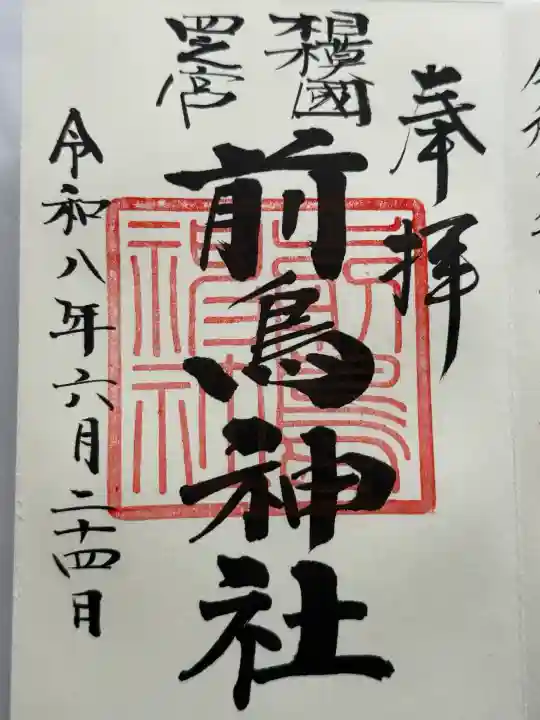 奉拝
相模國
四之宮
前鳥神社
令和八年六月二十四日